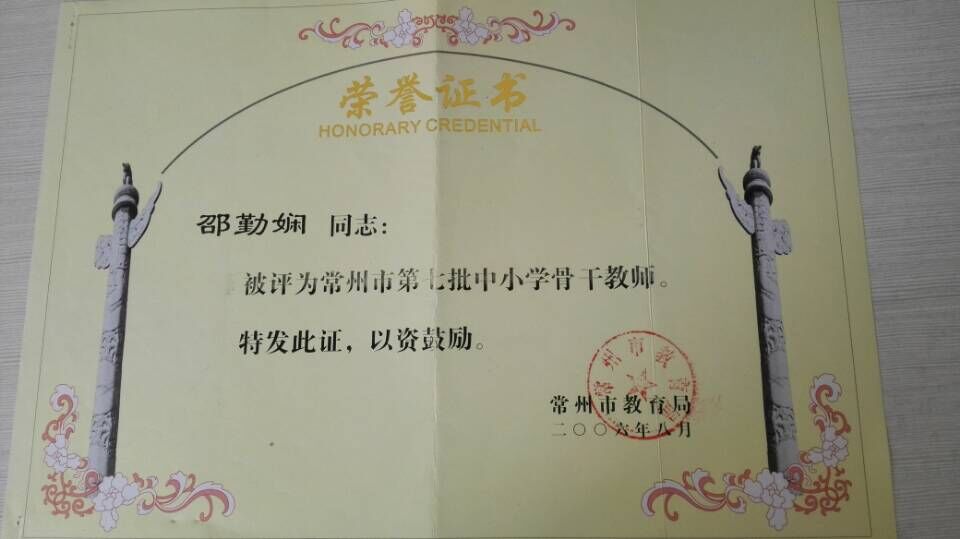 荣誉证书
HONORARY CREDENTIAL
邵勤娴 同志：
被评为常州市第七批中小学骨干教师。
特发此证，以资鼓励。
常州市教育局
二〇〇六年八月